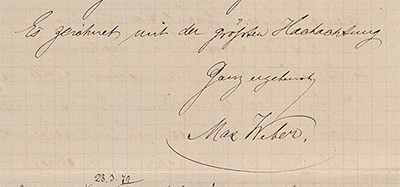 Es zeichnet mit der größten Hochachtung
Ganz ergebenst
Max Weber.
28.3.79